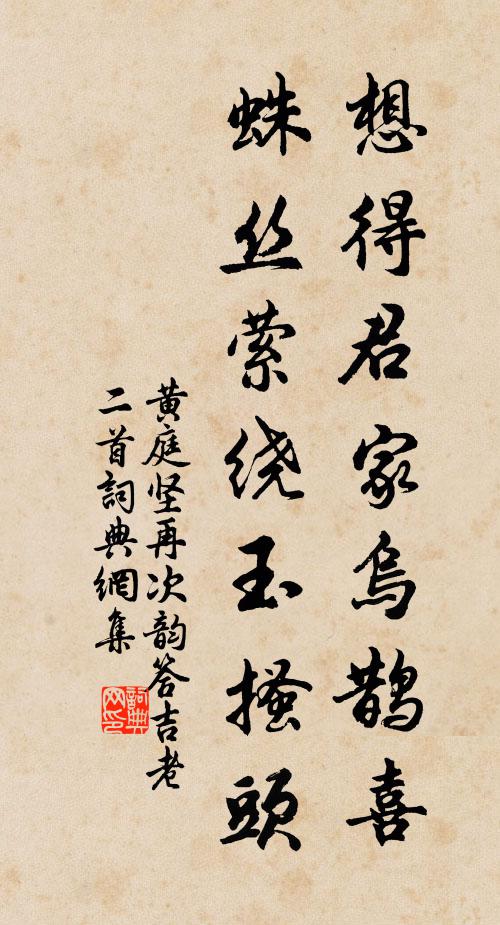 想得君家烏鵲喜
蛛丝萦绕玉搔頭
黄庭坚再次韵答吉老
二首詞典網集
詞典
网印